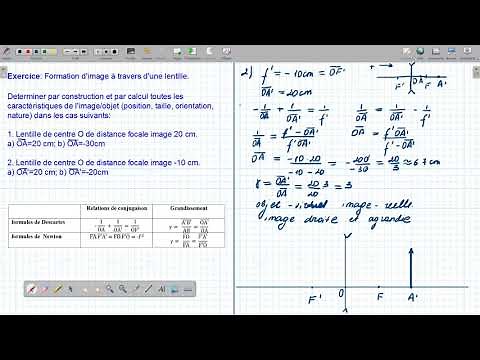 Exercice: Formation d'image à travers d'une lentille.
Determiner par construction et par calcul toutes les
caractéristiques de l'image/objet (position, taille, orientation,
nature) dans les cas suivants:
1. Lentille de centre O de distance focale image 20 cm.
a) OA=20 cm; b) OA=-30cm
2. Lentille de centre O de distance focale image -10 cm.
a) OA'=20 cm; b) OA'=-20cm
Relations de conjugaison Grandissement
formules de Descartes -1/OA + 1/OA' = 1/OF' γ = A'B'/AB = OA'/OA
formules de Newton FA.F'A' = FO.F'O = -f'²
2) f' = -10cm = OF'
OA' = 20cm
+ → F' O A F A'
-1/OA + 1/OA' = 1/f' 1/OA = 1/OA' - 1/f'
1/OA = f' - OA' / f'OA' OA = f'OA' / f' - OA'
OA = -10·20 / -10-20 = -200/-30 = 20/3 ≈ 6,7 cm
γ = OA'/OA = 20/20·3 = 3
objet - image - réelle
image droite et agrandie
F' O F A'